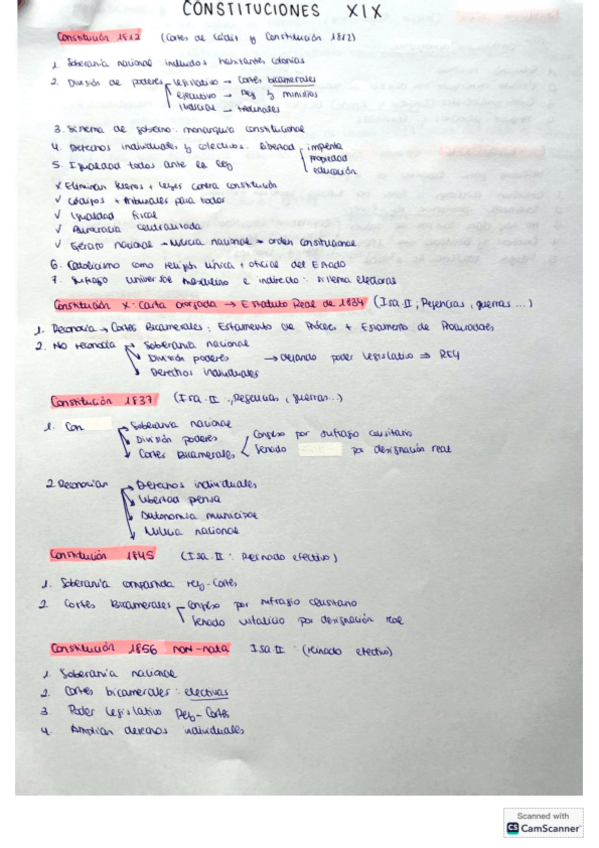 CONSTITUCIONES XIX
Constitución 1812 (Cortes de Cádiz y Constitución 1812)
1. Soberanía nacional incluidos habitantes colonias
2. División de poderes legislativo → Cortes bicamerales
ejecutivo → Rey y ministros
Judicial → tribunales
3. Sistema de gobierno: monarquía constitucional
4. Derechos individuales y colectivos: libertad imprenta
propiedad
5. Igualdad todos ante la ley
educación
x Eliminan fueros + leyes contra constitución
✓ Códigos + tribunales para todos
✓ Igualdad fiscal
✓ Burocracia centralizada
✓ Ejército nacional → Milicia nacional → orden constitucional
6. Catolicismo como religión única + oficial del Estado
7. Sufragio universal masculino e indirecto: sistema electoral
Constitución X- Carta otorgada → Estatuto Real de 1834 (Isa. II, Regencias, guerras ...)
1. Reconocía → Cortes Bicamerales: Estamento de Próceres + Estamento de Procuradores
2. No reconocía Soberanía nacional
División poderes → dejando poder legislativo ⇒ REY
Derechos individuales
Constitución 1837 (Isa. II., Regencias, guerras...)
1. Con Soberanía nacional
División poderes Congreso por sufragio censitario
Cortes Bicamerales Senado por designación real
2 Reconocían Derechos individuales
Libertad prensa
Autonomía municipal
Milicia nacional
Constitución 1845 (Isa. II: Reinado efectivo)
1. Soberanía compartida rey-Cortes
2. Cortes Bicamerales Congreso por sufragio censitario
Senado vitalicio por designación real
Constitución 1856 non-nata Isa. II: (reinado efectivo)
1. Soberanía nacional
2. Cortes bicamerales: electivas
3. Poder legislativo Rey-Cortes
4. Amplian derechos individuales
Scanned with
CS CamScanner